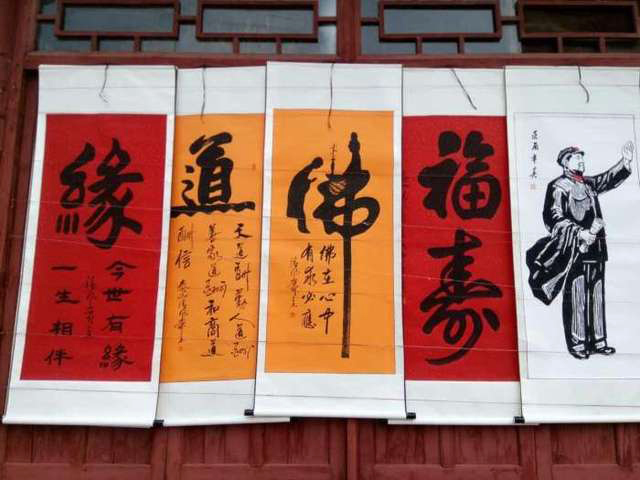 緣
今世有緣
一生相伴
道
天道酬勤人道酬
善家道酬和商道
酬信
佛
佛在心中
有求必應
福壽